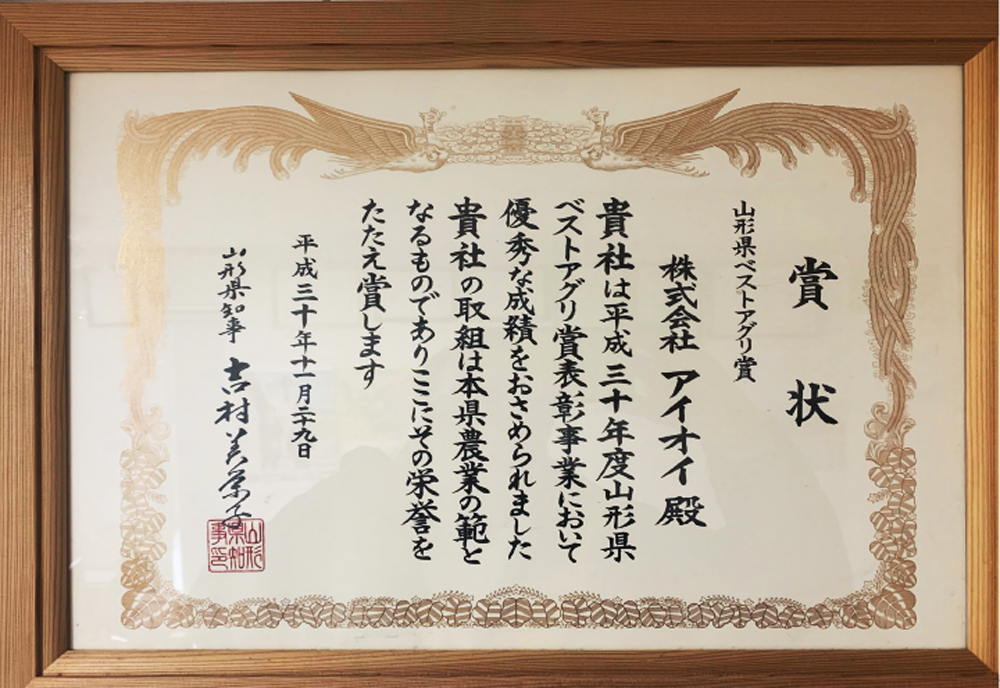 賞状
山形県ベストアグリ賞
株式会社 アイオイ 殿
貴社は平成三十年度山形県
ベストアグリ賞表彰事業において
優秀な成績をおさめられました
貴社の取組は本県農業の範と
なるものでありここにその栄誉を
たたえ賞します
平成三十年十一月二十九日
山形県知事 吉村美栄子
山形県知事印